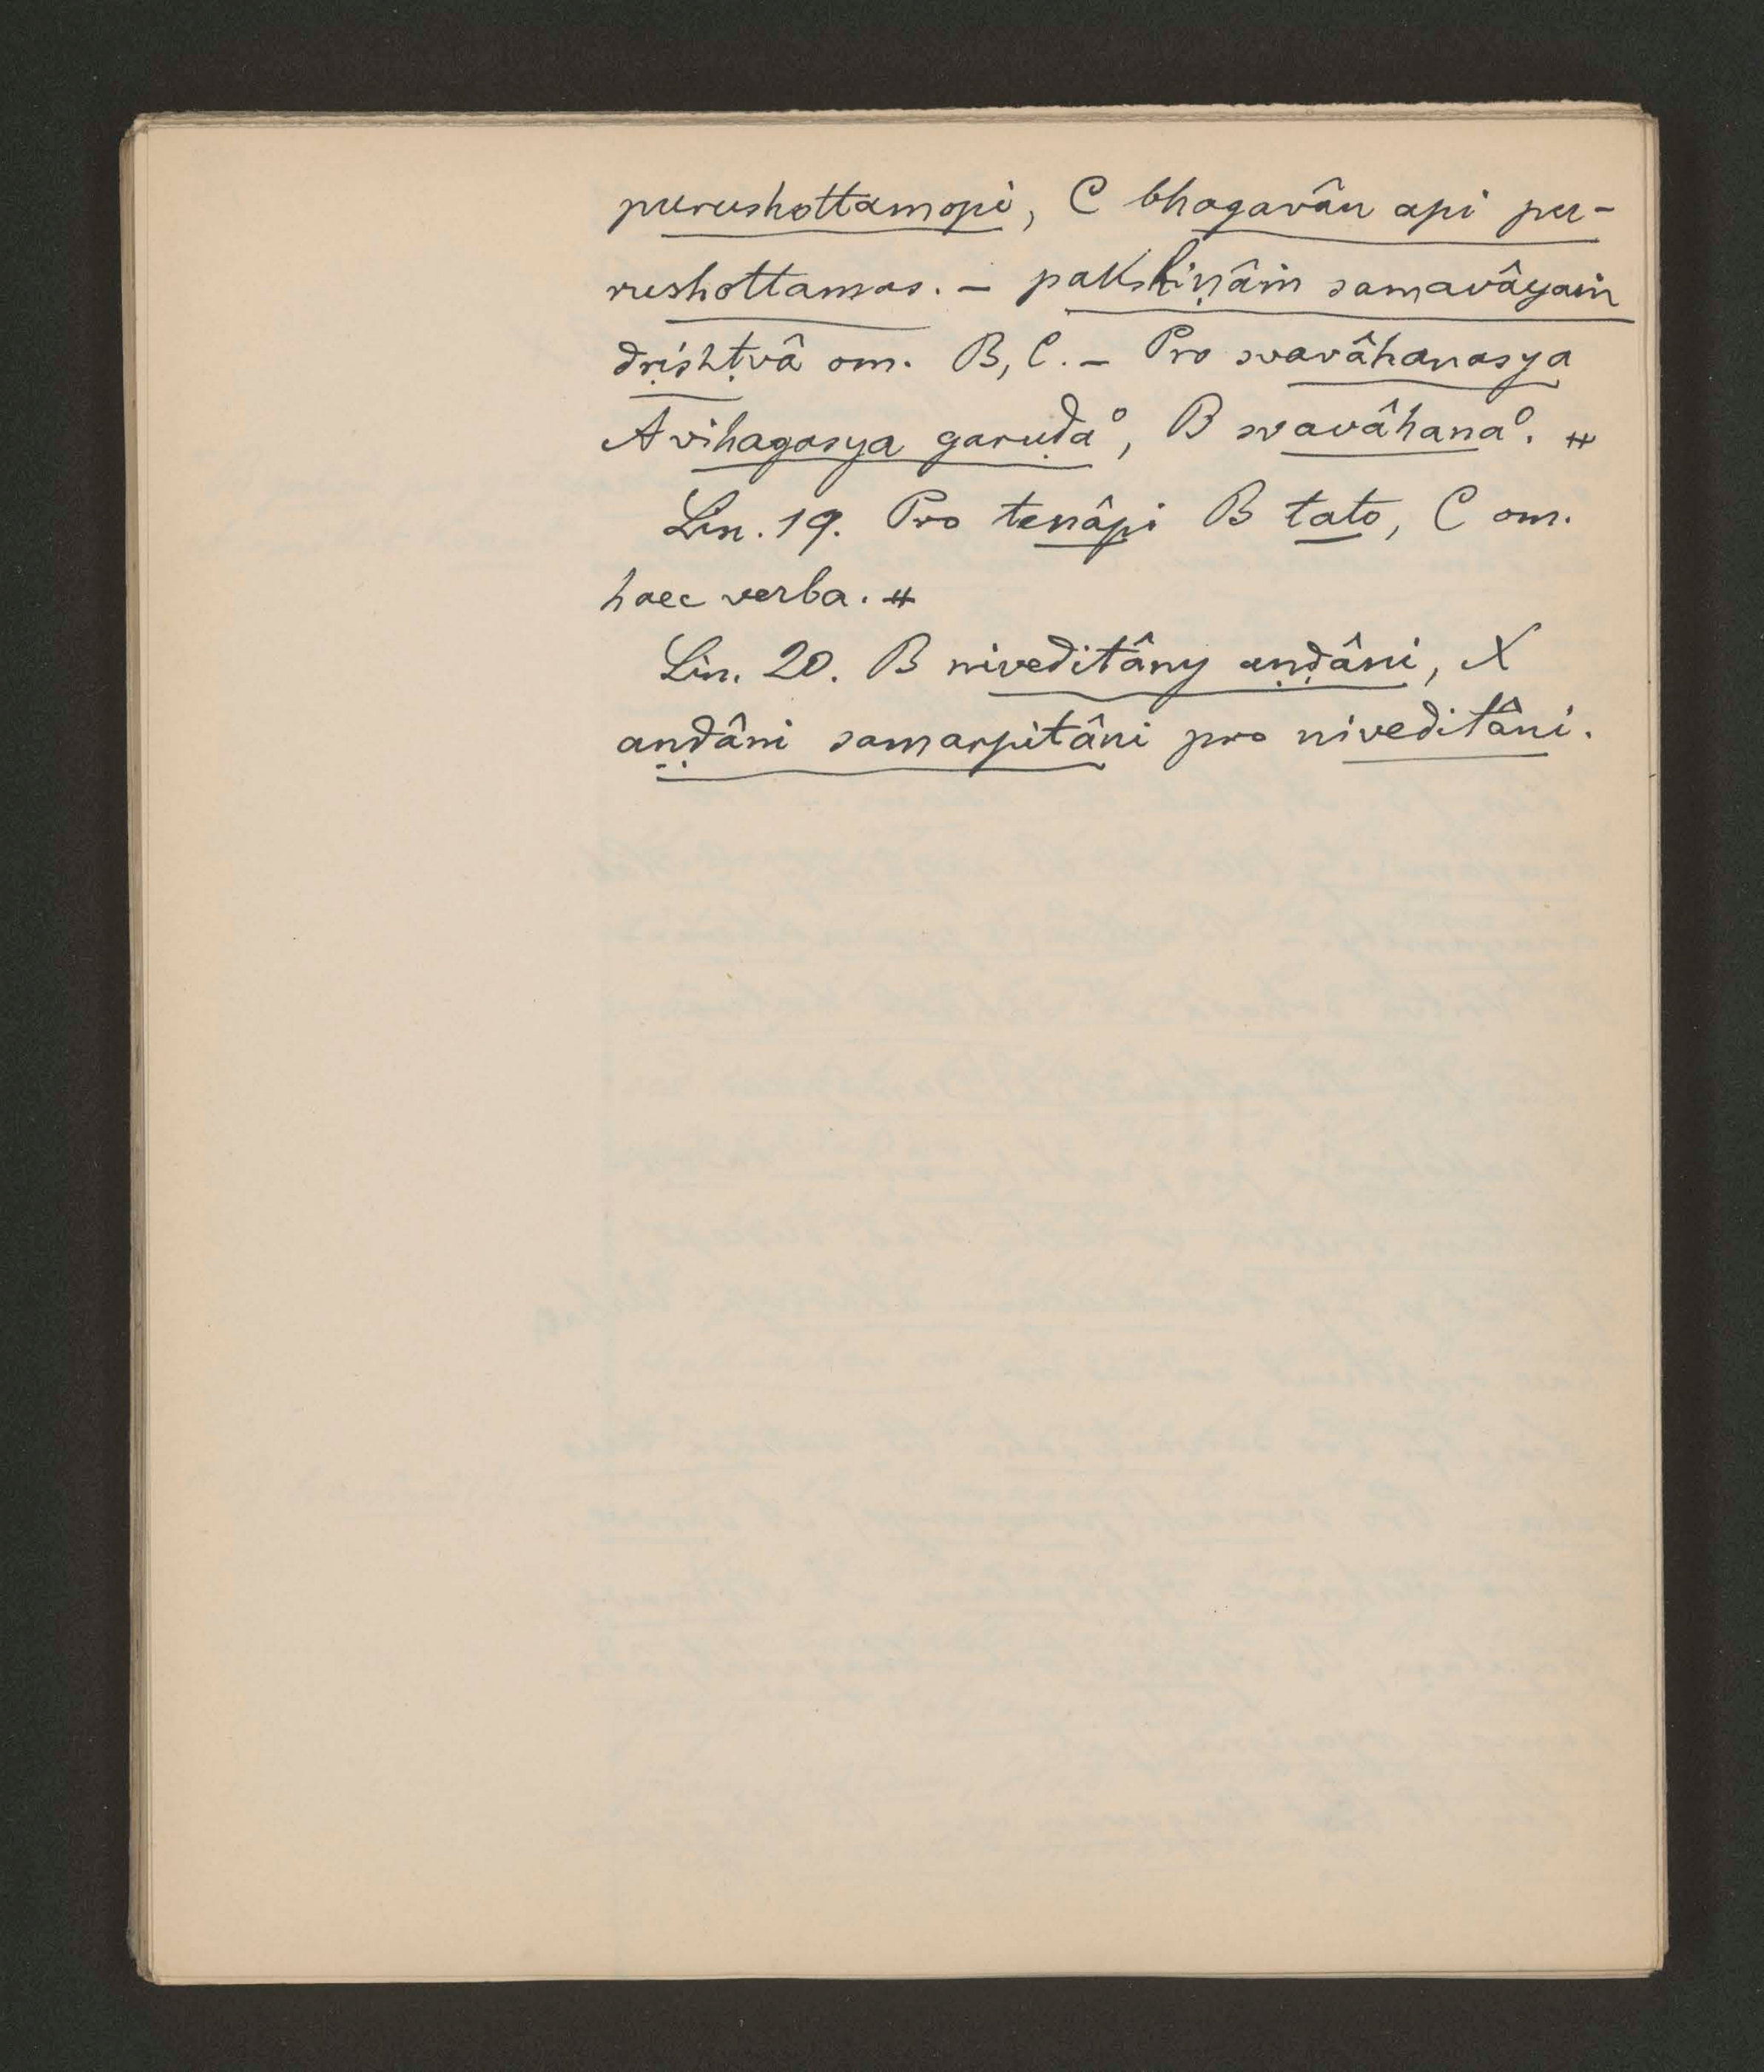 purushottamopi, C bhagavân api pu-
rushottamas. – pakshiṇâṁ samavâyaṁ
dṛishṭvâ om. B, C. – Pro svavâhanasya
A vihagasya garuḍa°, B svavâhana°. #
Lin. 19. Pro tenâpi B tato, C om.
haec verba. #
Lin. 20. B niveditâny aṇḍâni, X
aṇḍâni samarpitâni pro niveditâni.